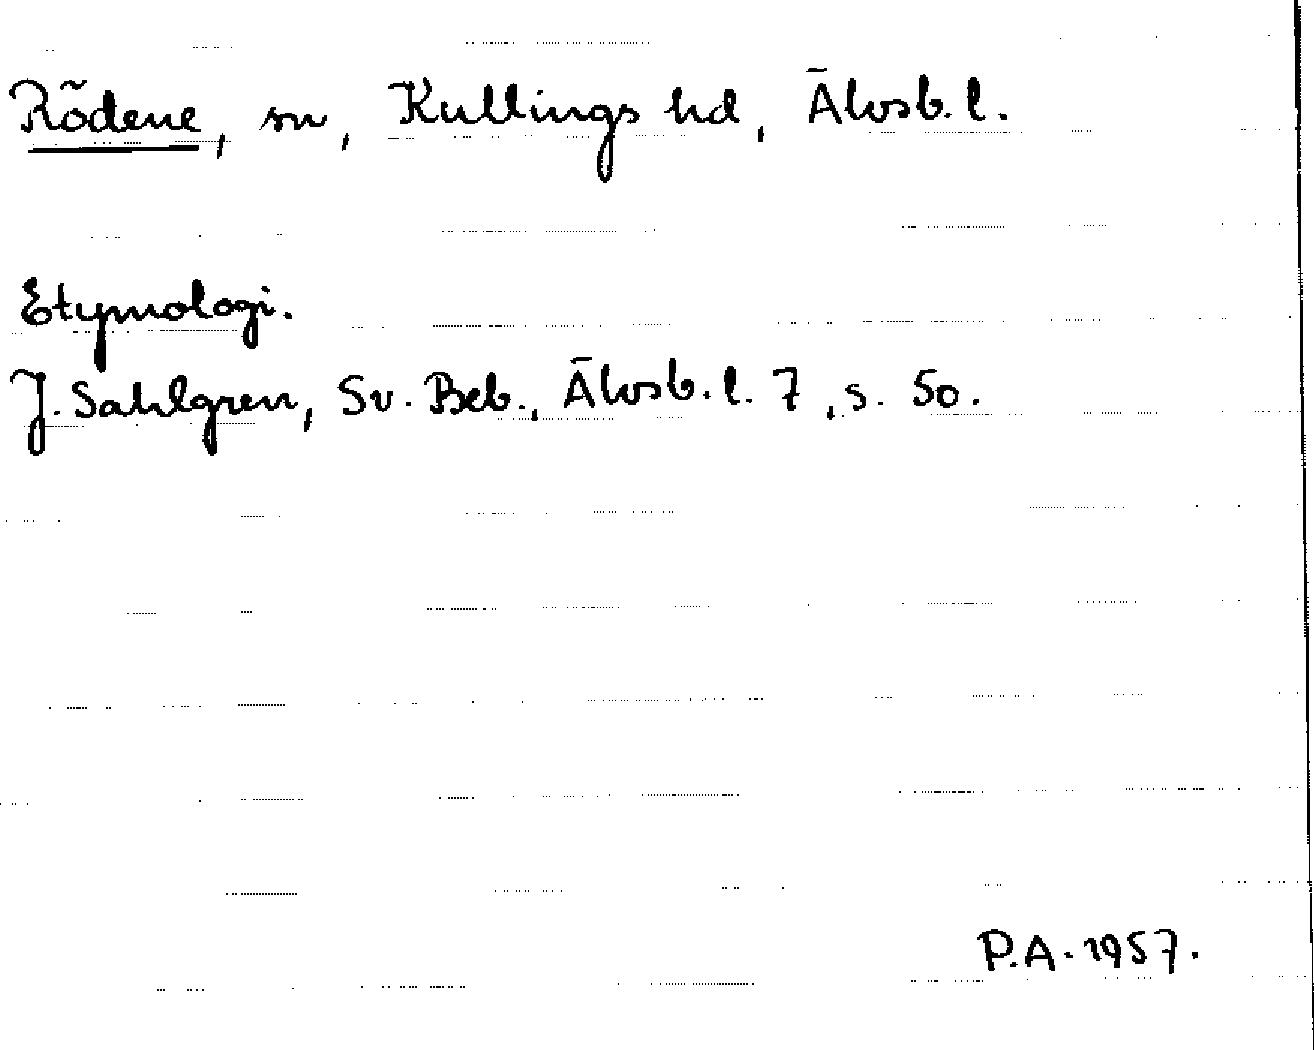 Rödene, sn, Kullings hd, Älvsb. l.
Etymologi.
J. Sahlgren, Sv. Beb., Älvsb. l. 7, s. 50.
P.A. 1957.